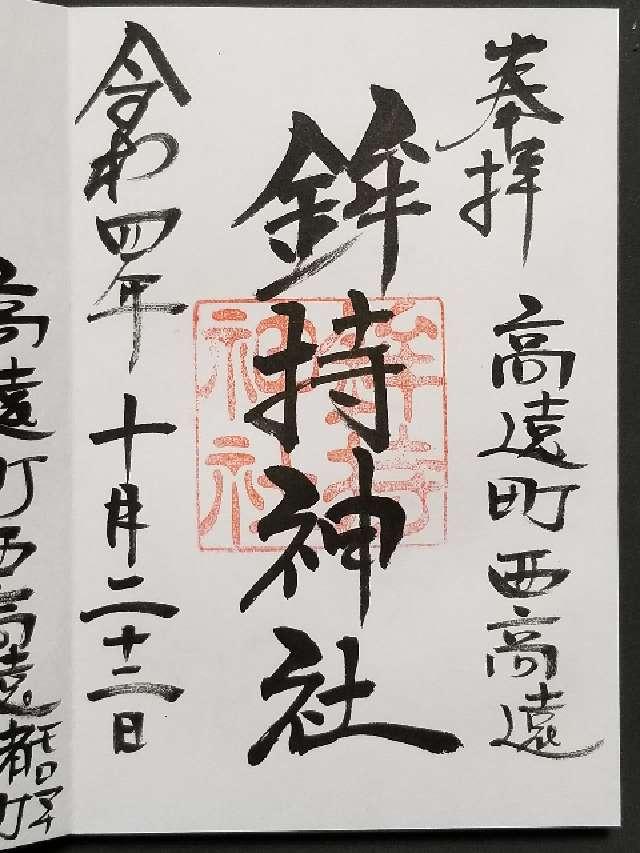 奉拝 高遠町西高遠
鉾持神社
鉾持神社
令和四年 十月二十二日
高遠町西高遠